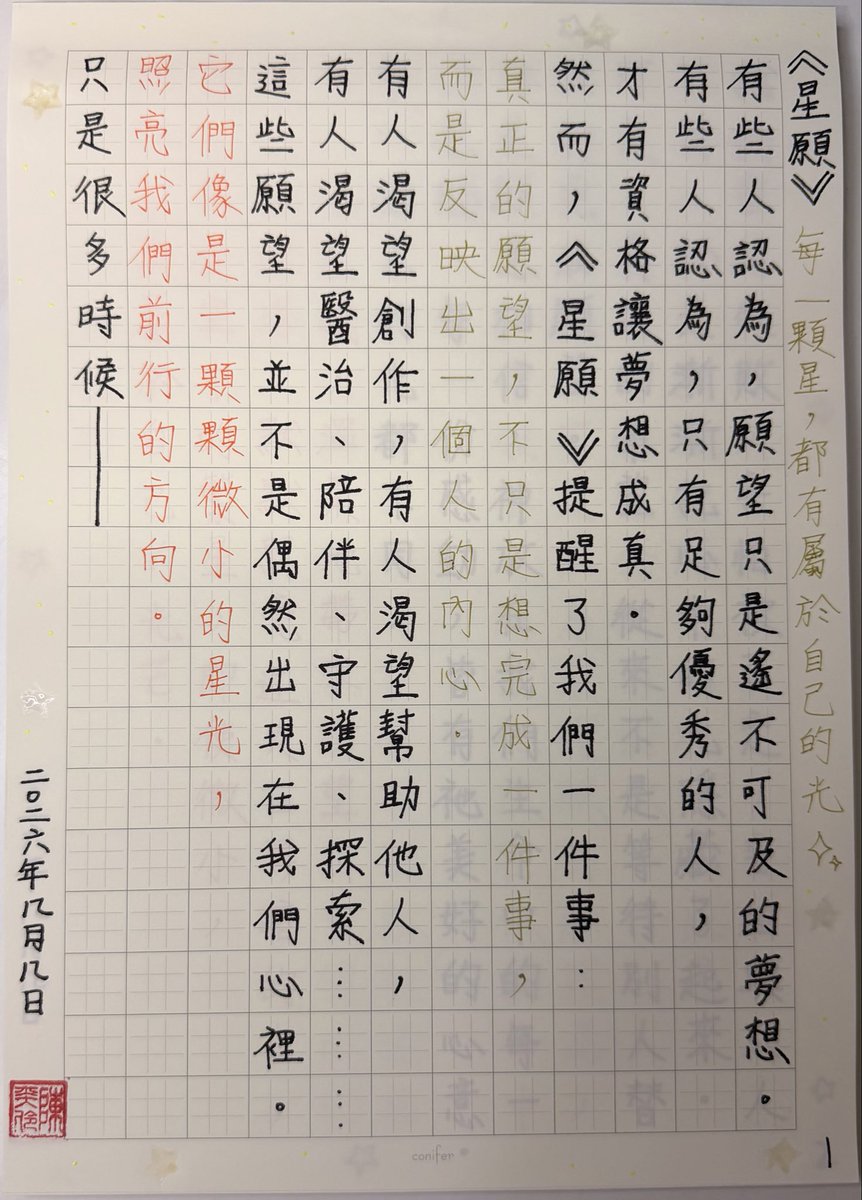 《星願》每一顆星，都有屬於自己的光
有些人認為，願望只是遙不可及的夢想。
有些人認為，只有足夠優秀的人，
才有資格讓夢想成真。
然而，《星願》提醒了我們一件事：
真正的願望，不只是想完成一件事，
而是反映出一個人的內心。
有人渴望創作，有人渴望幫助他人，
有人渴望醫治、陪伴、守護、探索………
這些願望，並不是偶然出現在我們心裡。
它們像是一顆顆微小的星光，
照亮我們前行的方向。
只是很多時候——
二〇二六年八月八日
conifer
1